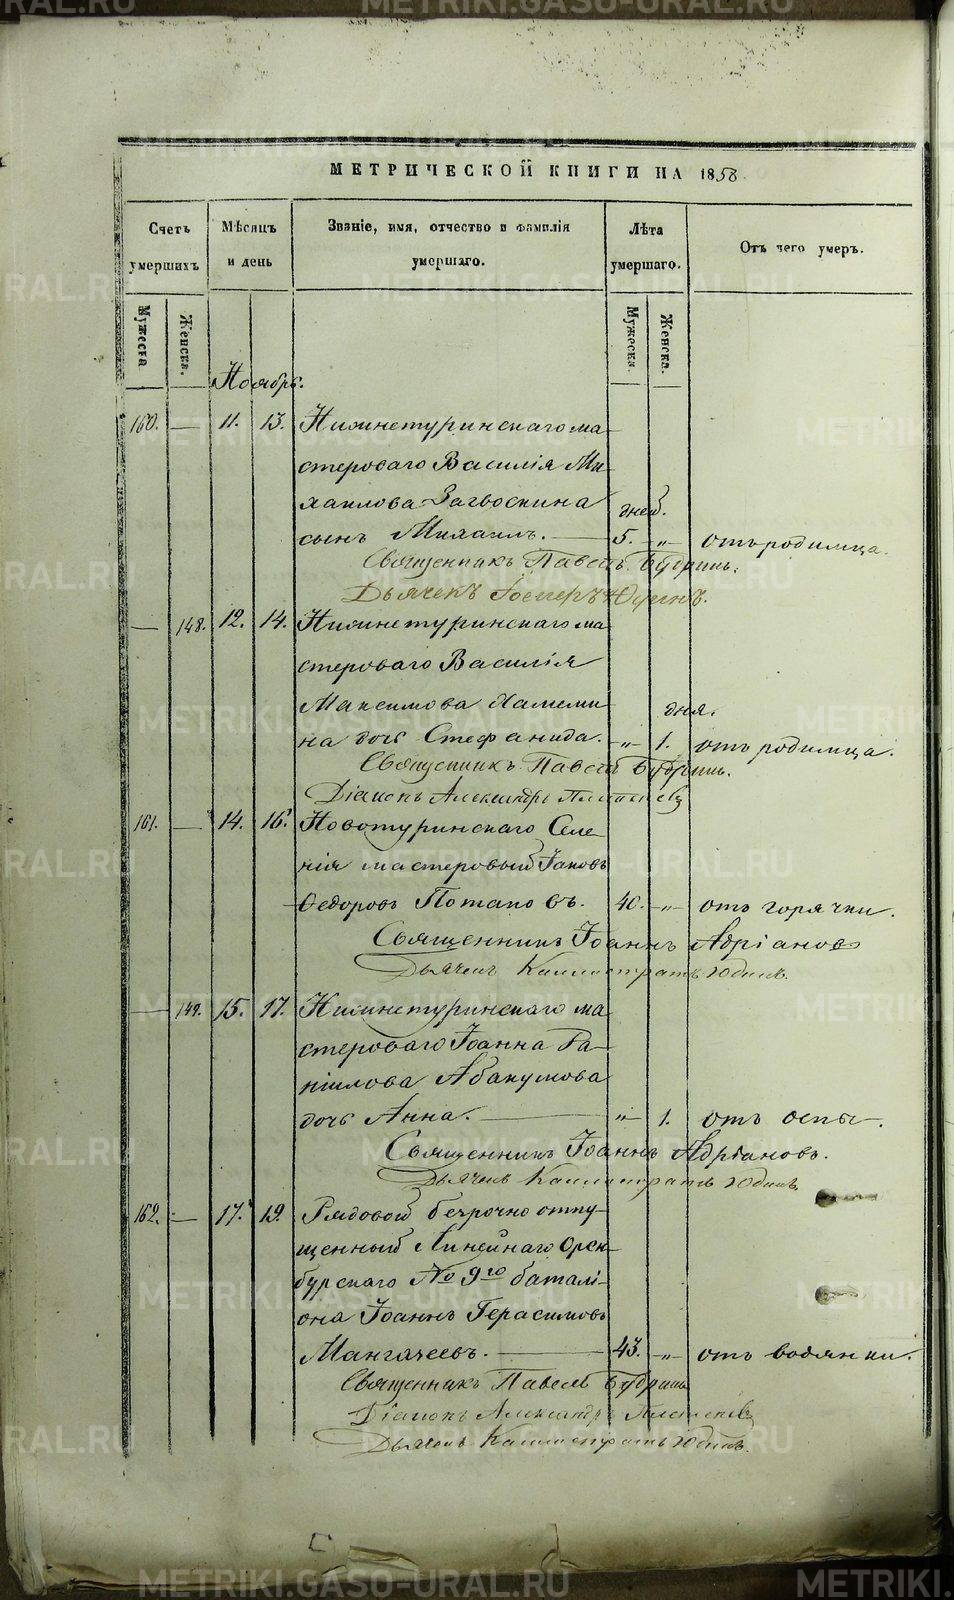 МЕТРИЧЕСКОЙ КНИГИ НА 1858
Счетъ умершихъ
Мѣсяцъ и день
Званіе, имя, отчество и фамилія умершаго.
Лѣта умершаго.
Отъ чего умеръ.
Мужеска
Женска.
Мужеска.
Женска.
Ноябрь.
160. — 11. 13. Нижнетуринскаго ма
стероваго Василія Ми
хаилова Загвоскина дней.
сынъ Михаилъ. — 5. „ отъ родимца.
Священникъ Павелъ Будринъ.
Дьячекъ Юдинъ.
— 148. 12. 14. Нижнетуринскаго ма
стероваго Василія
Максимова дня.
на дочь Стефанида. „ 1. отъ родимца.
Священникъ Павелъ Будринъ.
Діаконъ Александръ
161. — 14. 16. Новотуринскаго Селе
нія мастеровый Іаковъ
Ѳедоровъ Потаповъ. 40. „ отъ горячки.
Священникъ Іоаннъ Адріановъ
Дьячекъ Каллистратъ Юдинъ.
— 149. 15. 17. Нижнетуринскаго ма
стероваго Іоанна Да–
ніилова Абакумова
дочь Анна. — „ 1. отъ оспы.
Священникъ Іоаннъ Адріановъ.
Дьячекъ Каллистратъ Юдинъ.
162. — 17. 19. Рядовой безсрочно отпу–
щенный Линейнаго Орен–
бургскаго № 9го баталі–
она Іоаннъ Герасимовъ
Мангачеевъ. — 43. „ отъ водянки.
Священникъ Павелъ Будринъ
Діаконъ Александръ
Дьячекъ Каллистратъ Юдинъ.
METRIKI.GASO-URAL.RU